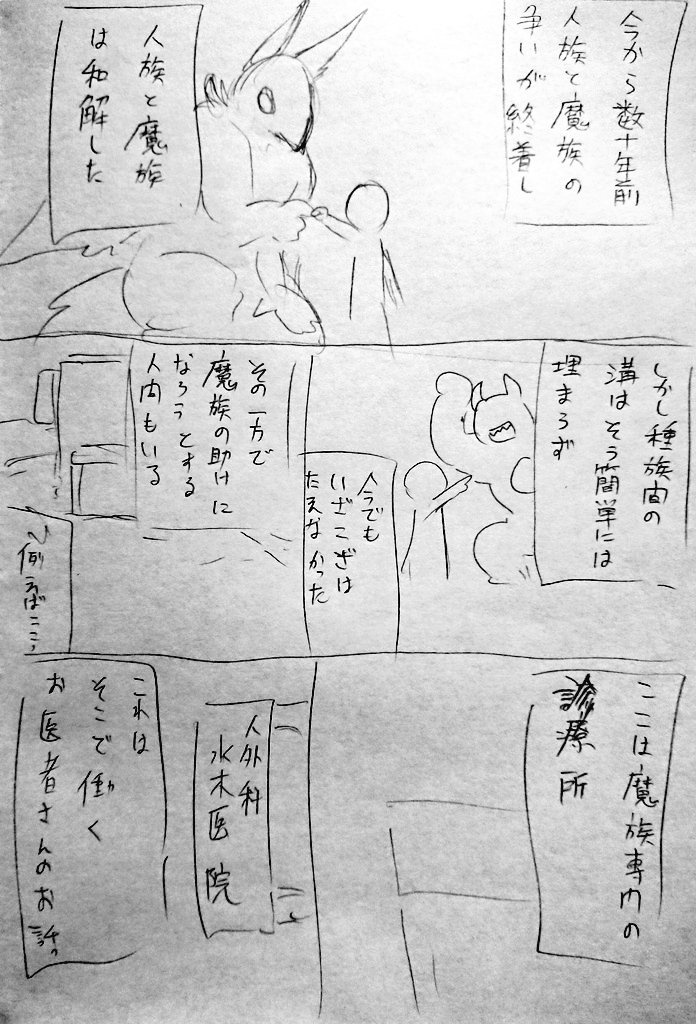 今から数十年前
人族と魔族の
争いが終着し
人族と魔族
は和解した
しかし種族間の
溝はそう簡単には
埋まらず
今でも
いざこざは
たえなかった
その一方で
魔族の助けに
なろうとする
人間もいる
例えばここ
ここは魔族専門の
診療所
人外科
水木医院
これは
そこで働く
お医者さんのお話